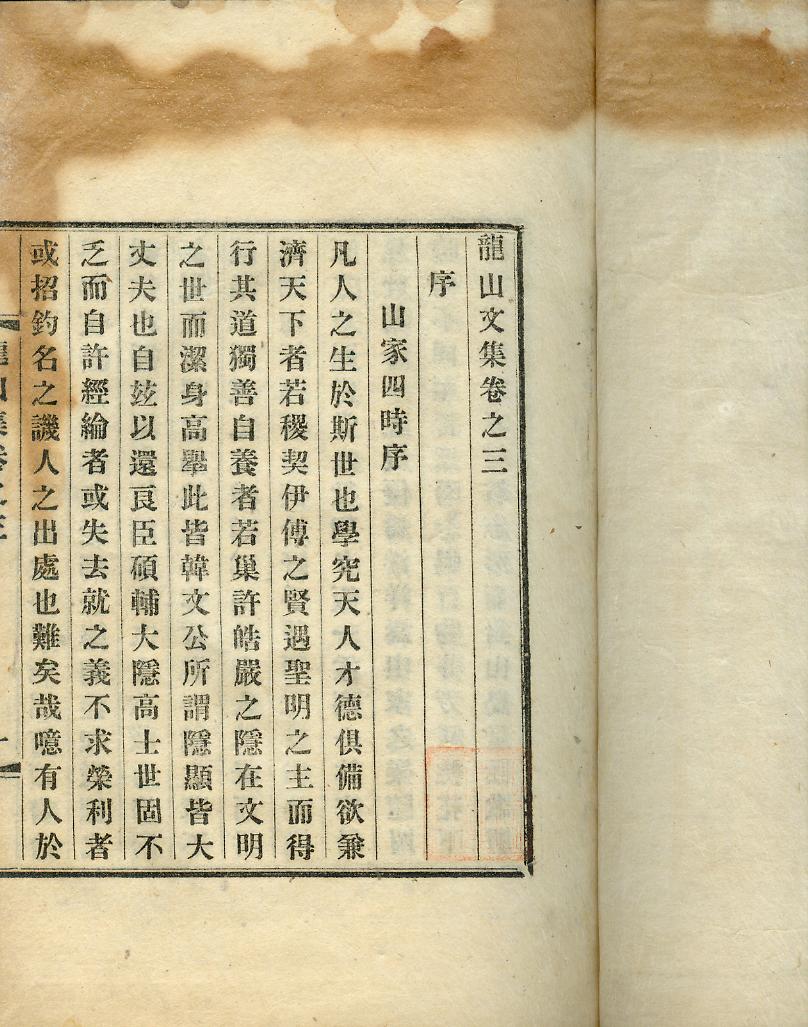 龍山文集卷之三
序
山家四時序
凡人之生於斯世也學究天人才德俱備欲兼
濟天下者若稷契伊傅之賢遇聖明之主而得
行其道獨善自養者若巢許皓嚴之隱在文明
之世而潔身高擧此皆韓文公所謂隱顯皆大
丈夫也自玆以還良臣碩輔大隱高士世固不
乏而自許經綸者或失去就之義不求榮利者
或招釣名之譏人之出處也難矣哉噫有人於